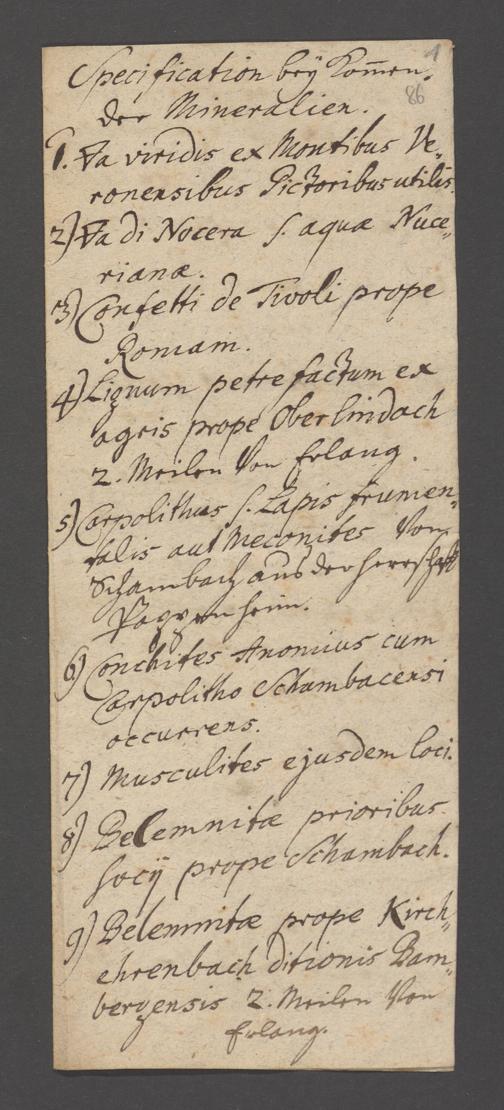 1
86
Specification beÿ kom̄en-
der Mineralien.
1. Va viridis ex Montibus Ve,,
ronensibus Pictoribus utilis.
2) Va di Nocera s. aquæ Nuce,,
rianæ.
3) Confetti de Tivoli prope
Romam.
4) Lignum petrefactum ex
agris prope Oberlindach
2. Meilen Von Erlang.
5) Carpolithus s. Lapis frumen,,
talis aut Meconites Von
Schambach aus der Herrschafft
Pappenheim.
6) Conchites Anomius cum
Carpolitho Schambacensi
occurrens.
7) Musculites ejusdem loci.
8) Belemnitæ prioribus
socÿ prope Schambach.
9) Belemnitæ prope Kirch,,
ehrenbach ditionis Bam,,
bergensis 2. Meilen Von
Erlang.